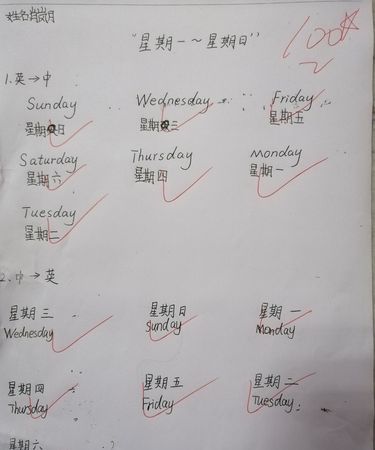 姓名肖岚月
"星期一~星期日"
100
1.英→中
Sunday Wednesday Friday
星期日 星期三 星期五
Saturday Thursday Monday
星期六 星期四 星期一
Tuesday
星期二
2.中→英
星期三 星期日 星期一
Wednesday Sunday Monday
星期四 星期五 星期二
Thursday Friday Tuesday
星期六